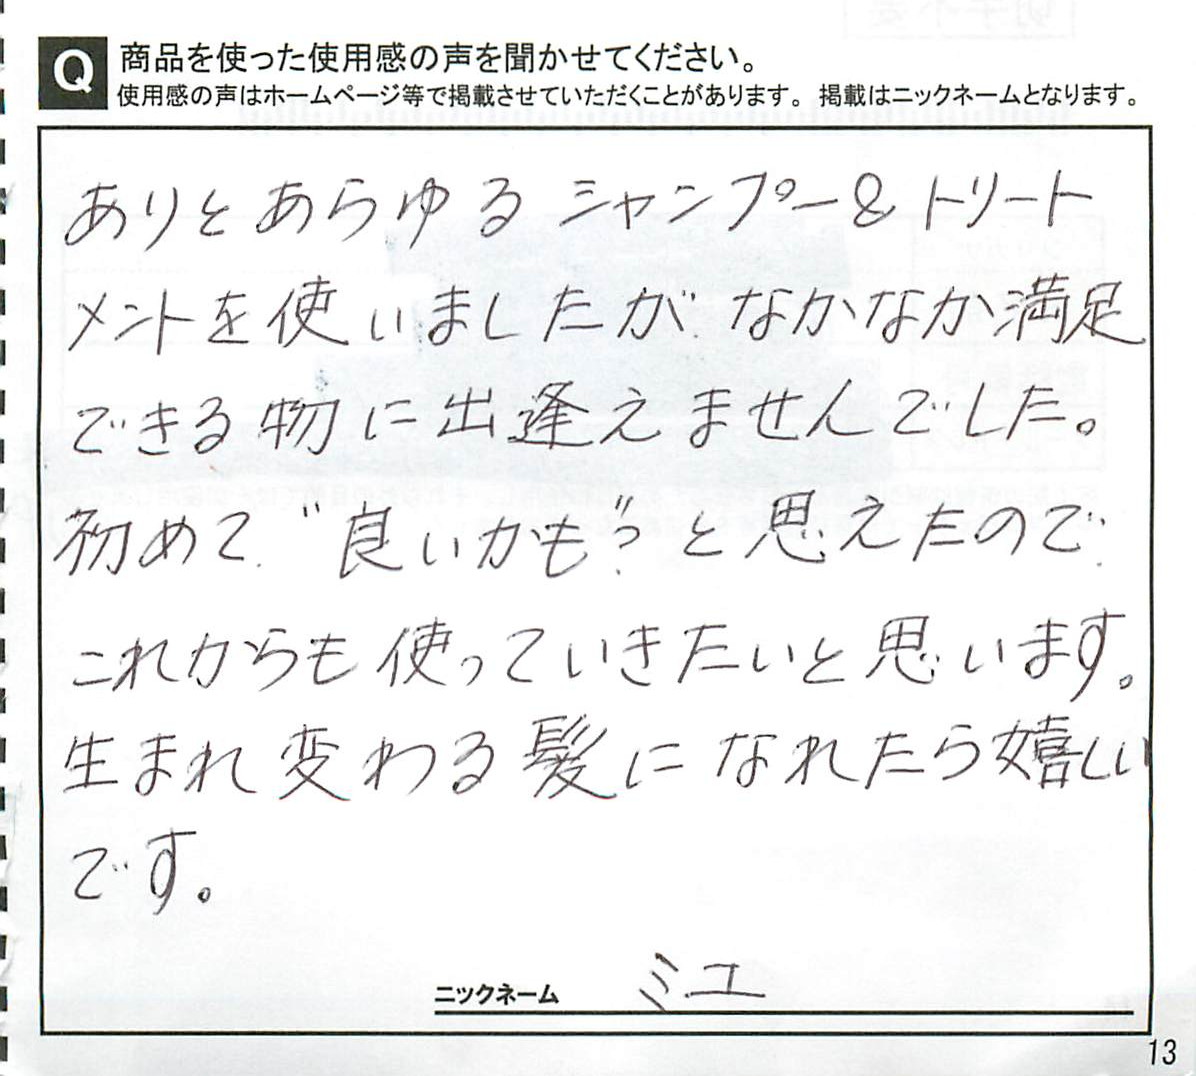 Q 商品を使った使用感の声を聞かせてください。
使用感の声はホームページ等で掲載させていただくことがあります。 掲載はニックネームとなります。
ありとあらゆるシャンプー&トリート
メントを使いましたが、なかなか満足
できる物に出逢えませんでした。
初めて、“良いかも”?と思えたので、
これからも使っていきたいと思います。
生まれ変わる髪になれたら嬉しい
です。
ニックネーム ミユ
13